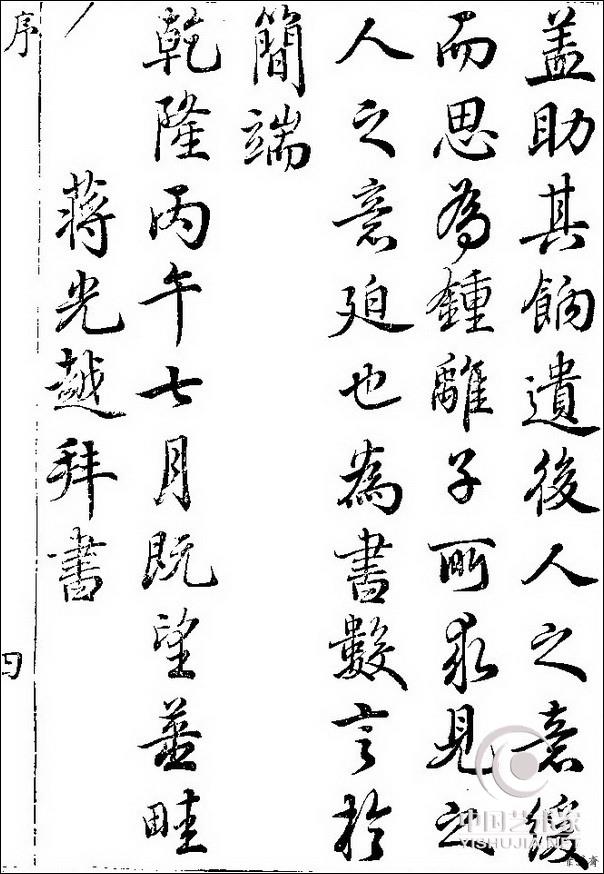 盖助其餉遺後人之意緩
而思為鍾離子所求見之
人之意廹也為書數言於
簡端
乾隆丙午七月既望畦
蔣光越拜書
序
中国艺术家
YISHUJIA.NET